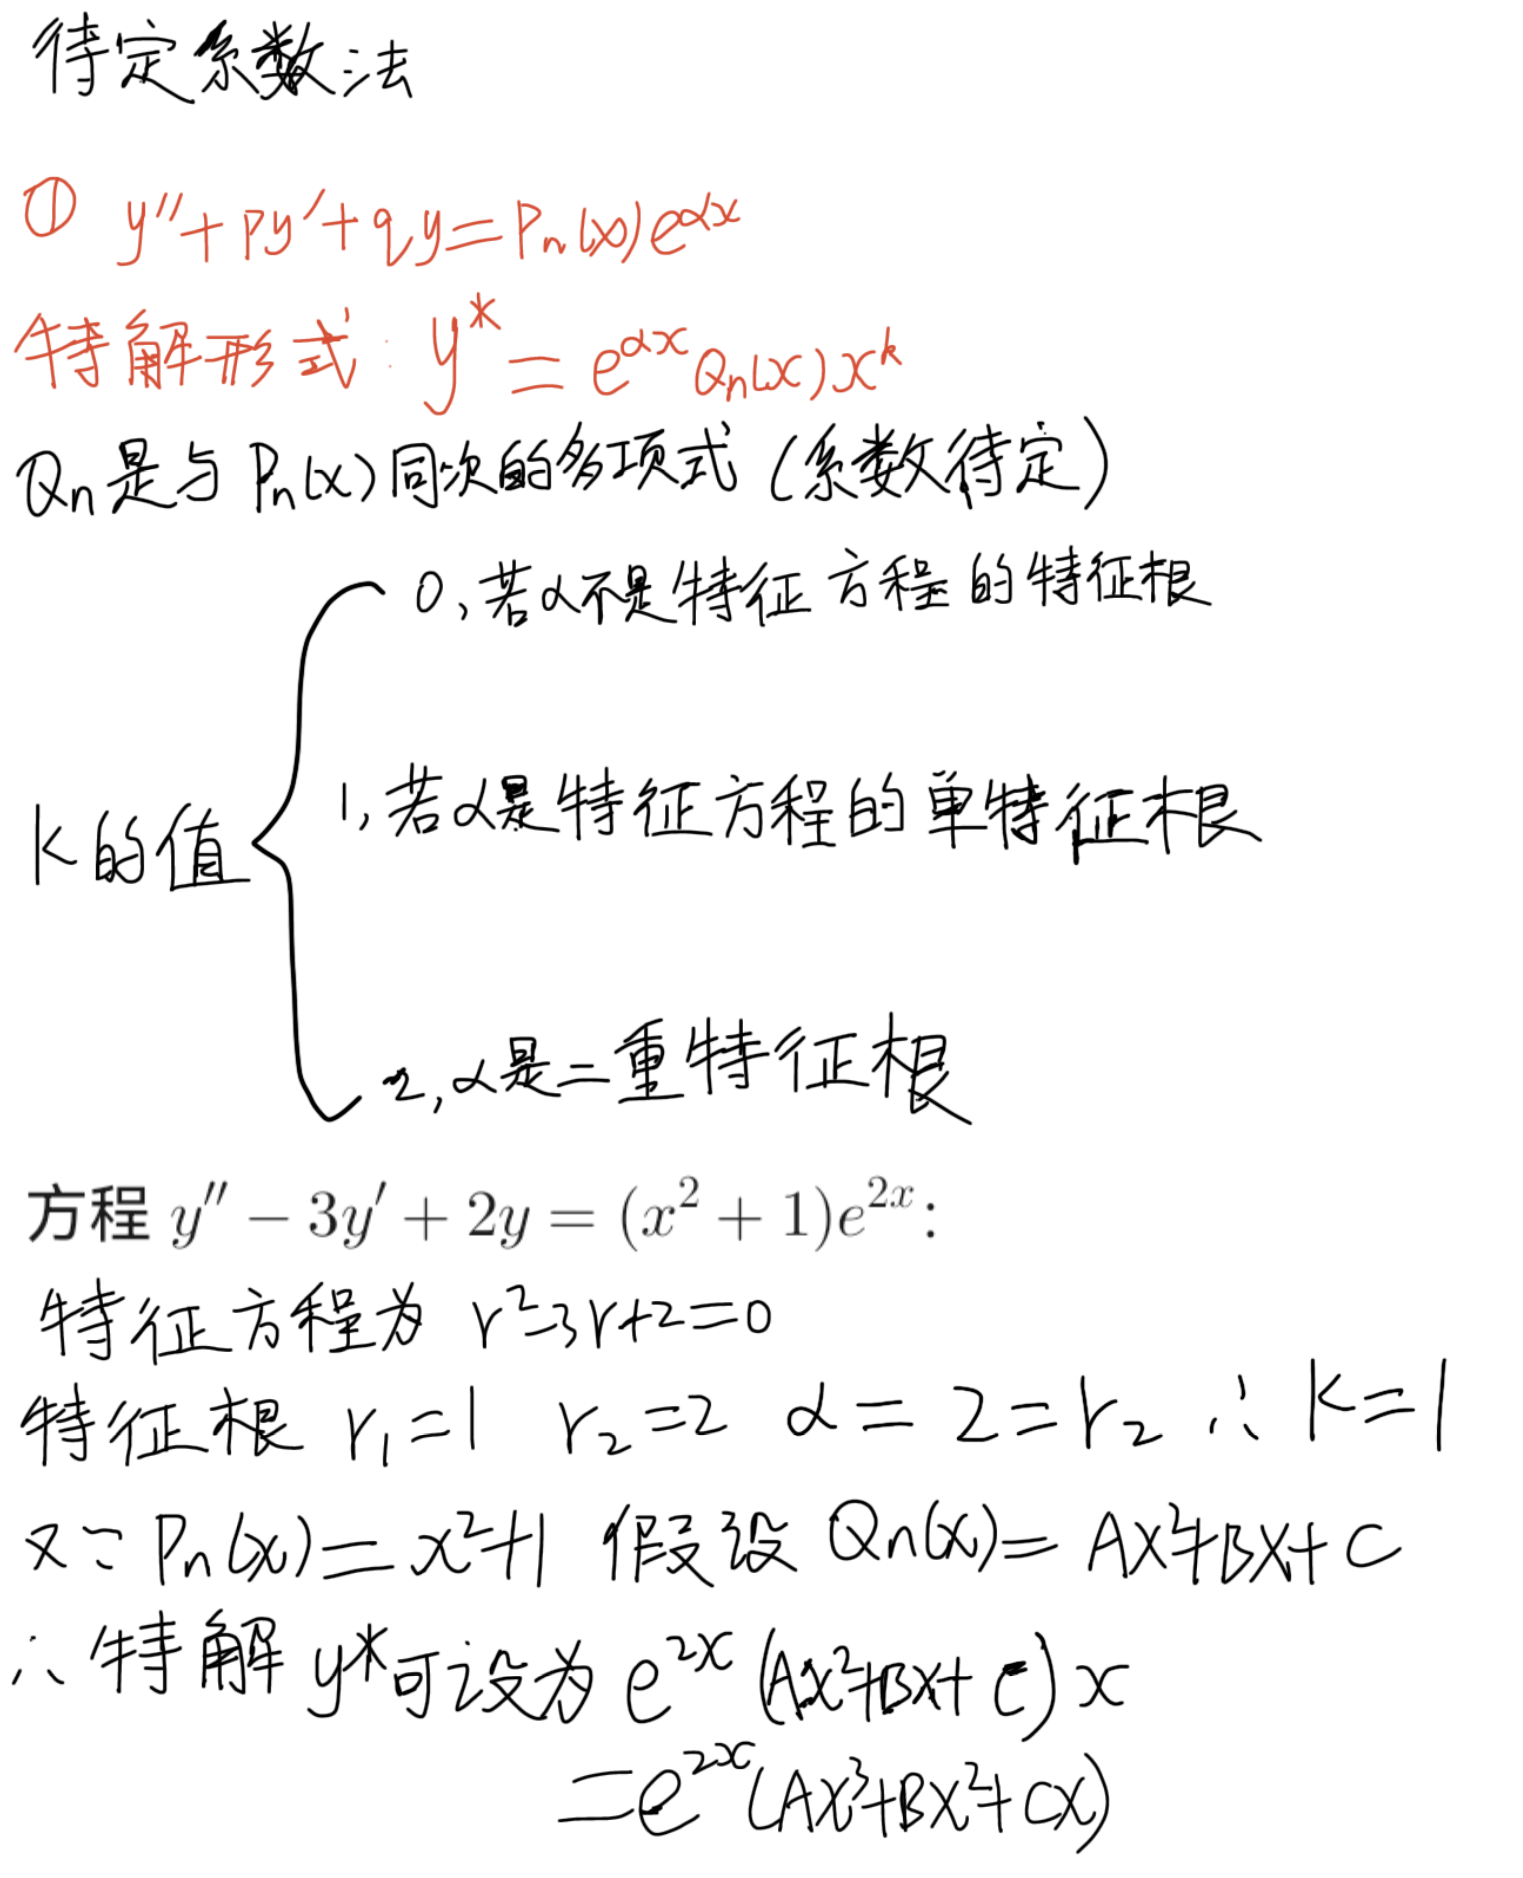 待定系数法
① y''+py'+qy=Pn(x)e^αx
特解形式: y*=e^αx Qn(x)x^k
Qn是与Pn(x)同次的多项式(系数待定)
0,若α不是特征方程的特征根
1,若α是特征方程的单特征根
k的值
2,α是二重特征根
方程 y'' − 3y' + 2y = (x² + 1)e^2x:
特征方程为 r²-3r+2=0
特征根 r₁=1 r₂=2 α=2=r₂ ∴k=1
又∵Pn(x)=x²+1 假设 Qn(x)=Ax²+Bx+C
∴特解y*可设为 e^2x(Ax²+Bx+C)x
=e^2x(Ax³+Bx²+Cx)